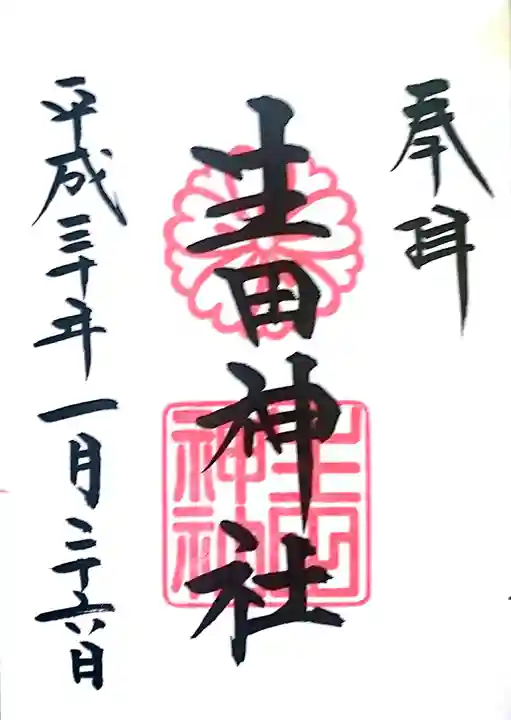 奉拝
生田神社
平成三十年一月二十六日
生田
神社